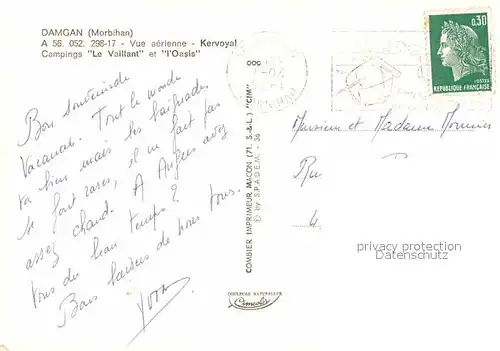 DAMGAN (Morbihan)
A 56. 052. 298-17 - Vue aérienne - Kervoyal
Campings "Le Vaillant" et "l'Oasis"
0.30
POSTES
REPUBLIQUE FRANÇAISE
Bon souvenir de
Vacances. Tout le monde
va bien mais les baignades
se font rares, il ne fait pas
assez chaud. A Angers avez
Vous du beau temps ?
Bons baisers de nous tous.
Yvon
COMBIER IMPRIMEUR MACON (71. S.-&L.) "CIM"
© by S.P.A.D.E.M. - 36
COULEURS NATURELLES
Cimcolor
Monsieur et Madame Monnier
Rue
4
privacy protection
Datenschutz